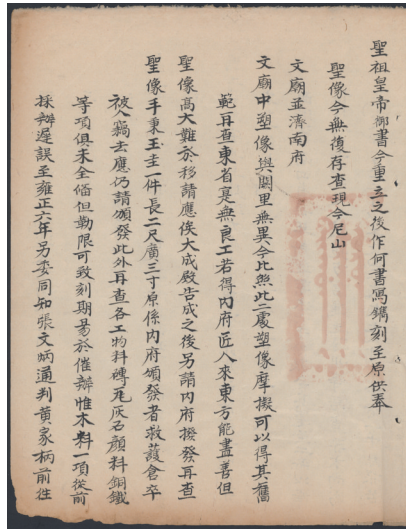 聖祖皇帝御書今重立之後作何書寫鐫刻至原供奉
聖像今無復存查現今尼山
文廟並濟南府
文廟中塑像與闕里無異今比照此二處塑像摩擬可以得其舊
範再查東省寔無良工若得内府匠人來東方能盡善但
聖像高大難於移請應俟大成殿告成之後另請内府撥發再查
聖像手秉玉圭一件長二尺廣三寸原係内府頒發者救護倉卒
被人竊去應仍請頒發此外再查各工物料磚瓦灰石顔料銅鐵
等項俱未全備但勒限可致刻期易於催辦惟木料一項從前
採辦遲誤至雍正六年另委同知張文炳通判黄家柄前往